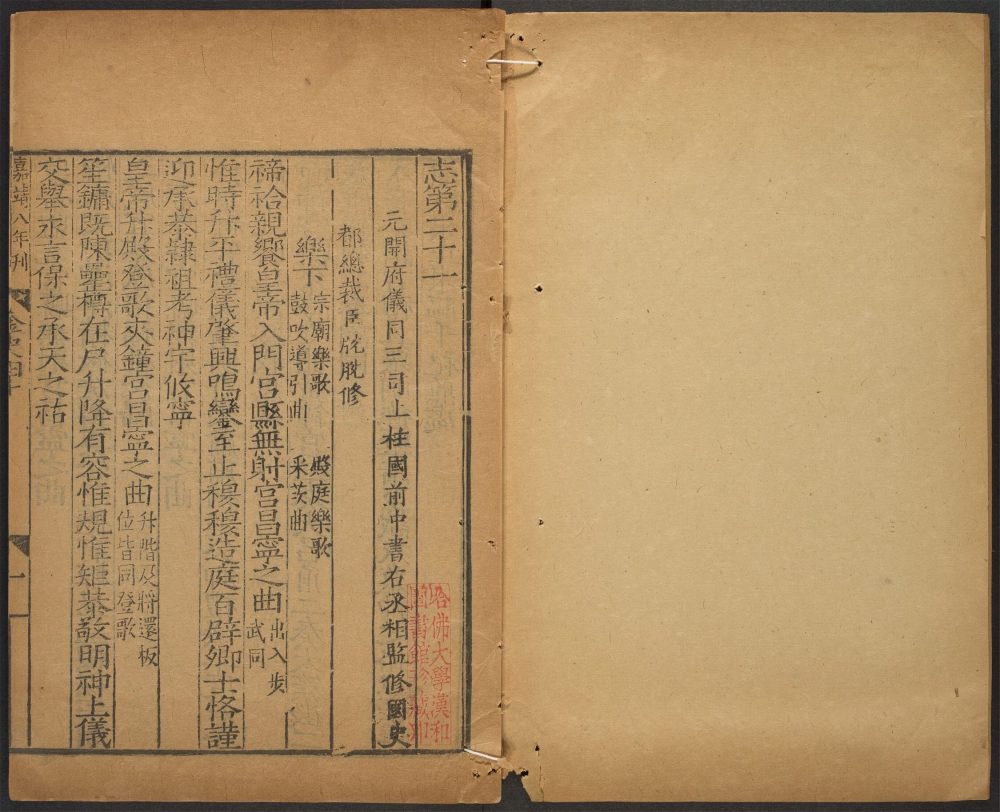 志第二十一
元開府儀同三司上柱國前中書右丞相監修國史
都總裁臣脫脫修
樂下 宗廟樂歌 殿庭樂歌
鼓吹導引曲 采茨曲
禘祫親饗皇帝入門宮縣無射宮昌寧之曲 出入步
武同
惟時升平禮儀肇興鳴鑾至止穆穆造庭百辟卿士恪謹
迎承恭隸祖考神宇攸寧
皇帝升殿登歌夾鐘宮昌寧之曲 升階及將還板
位皆同登歌
笙鏞既陳罍樽在戶升降有容惟規惟矩恭敬明神上儀
交舉永言保之承天之祜
嘉靖八年刊
金史四十
一
哈佛大學漢和
圖書館珍藏印